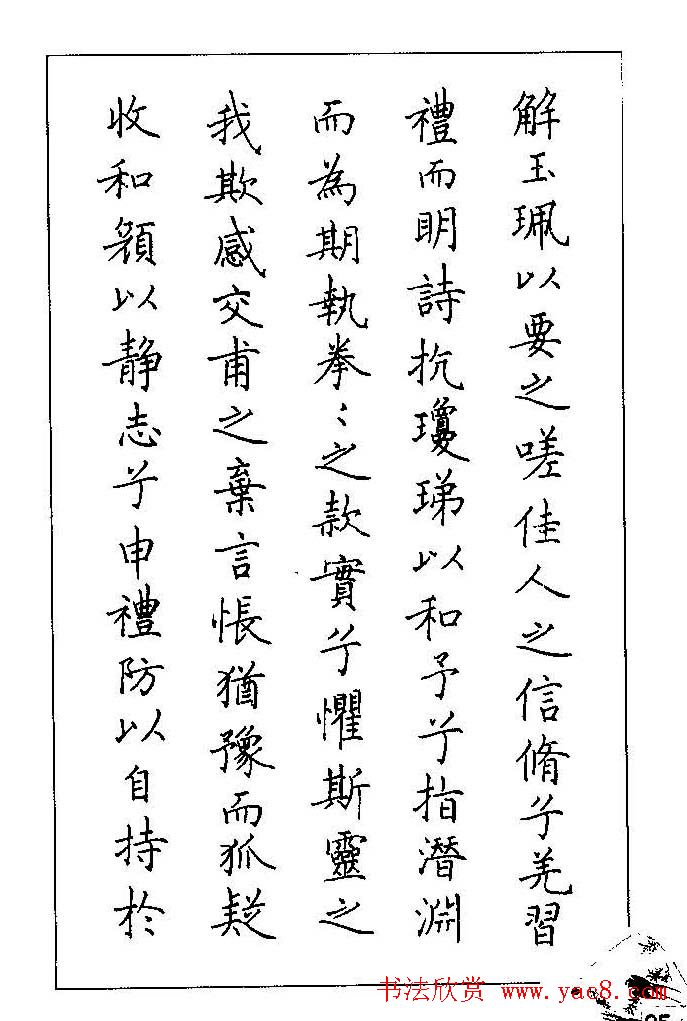 解玉珮以要之嗟佳人之信脩兮羌習
禮而明詩抗瓊珶以和予兮指潛淵
而為期執拳〻之款實兮懼斯靈之
我欺感交甫之棄言悵猶豫而狐疑
收和顏以静志兮申禮防以自持於
书法欣赏 www.yac8.com